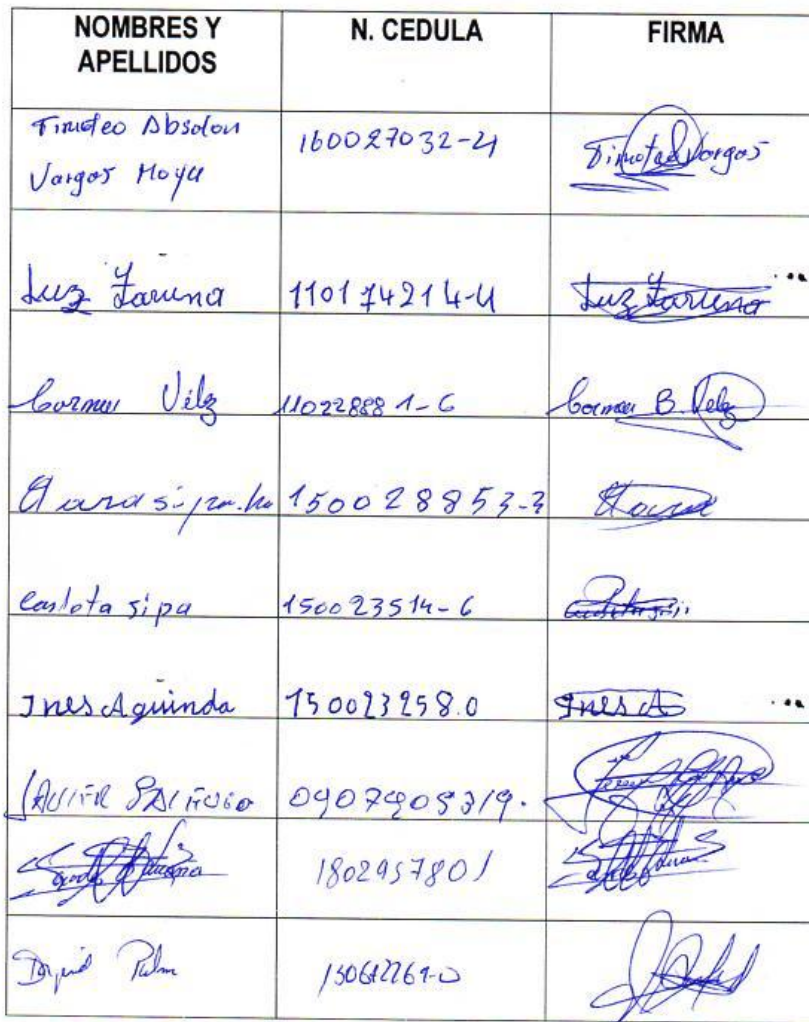 NOMBRES Y
APELLIDOS
N. CEDULA
FIRMA
Timoteo Absolon
Vargas Moya
160027032-4
Timoteo Vargas
Luz Zaruna
110174214-4
Luz Zaruna
Carmen Vélz
11022888 1-6
Carmen B. Velz
150028853-3
Carlota sipa
150023514-6
Ines Aguinda
150023258.0
Ines A
JAVIER
0907909319.
1802957801
David